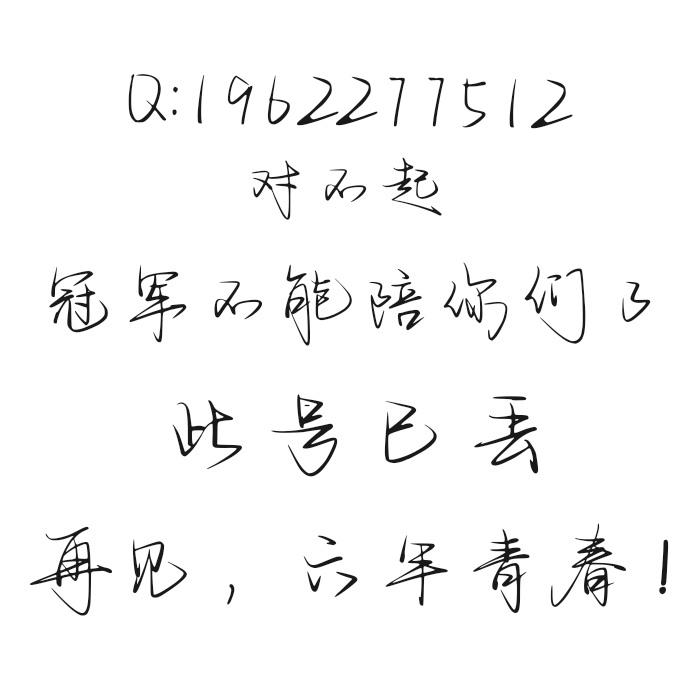 Q:1962277512
对不起
冠军不能陪你们了
此号已丢
再见，六年青春!